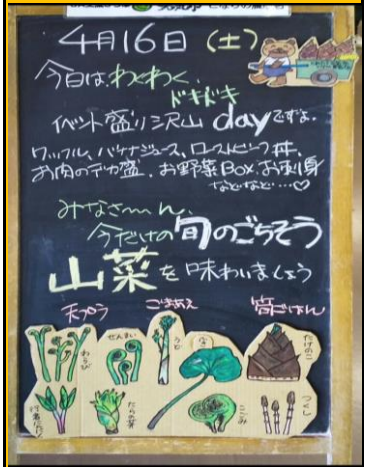 4月16日(土)
今日は、わくわく、
ドキドキ
イベント盛り沢山dayですよ。
ワッフル、バナナジュース、ローストビーフ丼、
お肉のデカ盛、お野菜Box、お刺身
などなど…♡
みなさ〜ん、
今だけの旬のごちそう
山菜を味わいましょう
天プラ
ごまあえ
筍ごはん
わらび
ぜんまい
うど
たけのこ
行者にんにく
たらの芽
こごみ
つくし